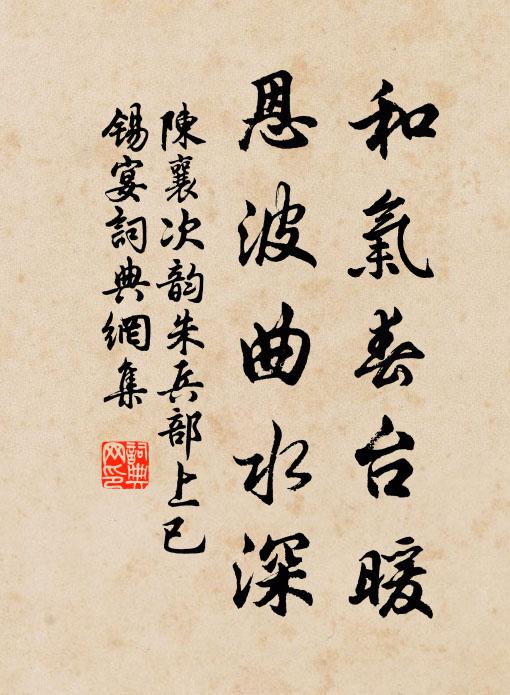 和氣春台暖
恩波曲水深
陳襄次韵朱兵部上巳
錫宴詞典網集
詞典
网印